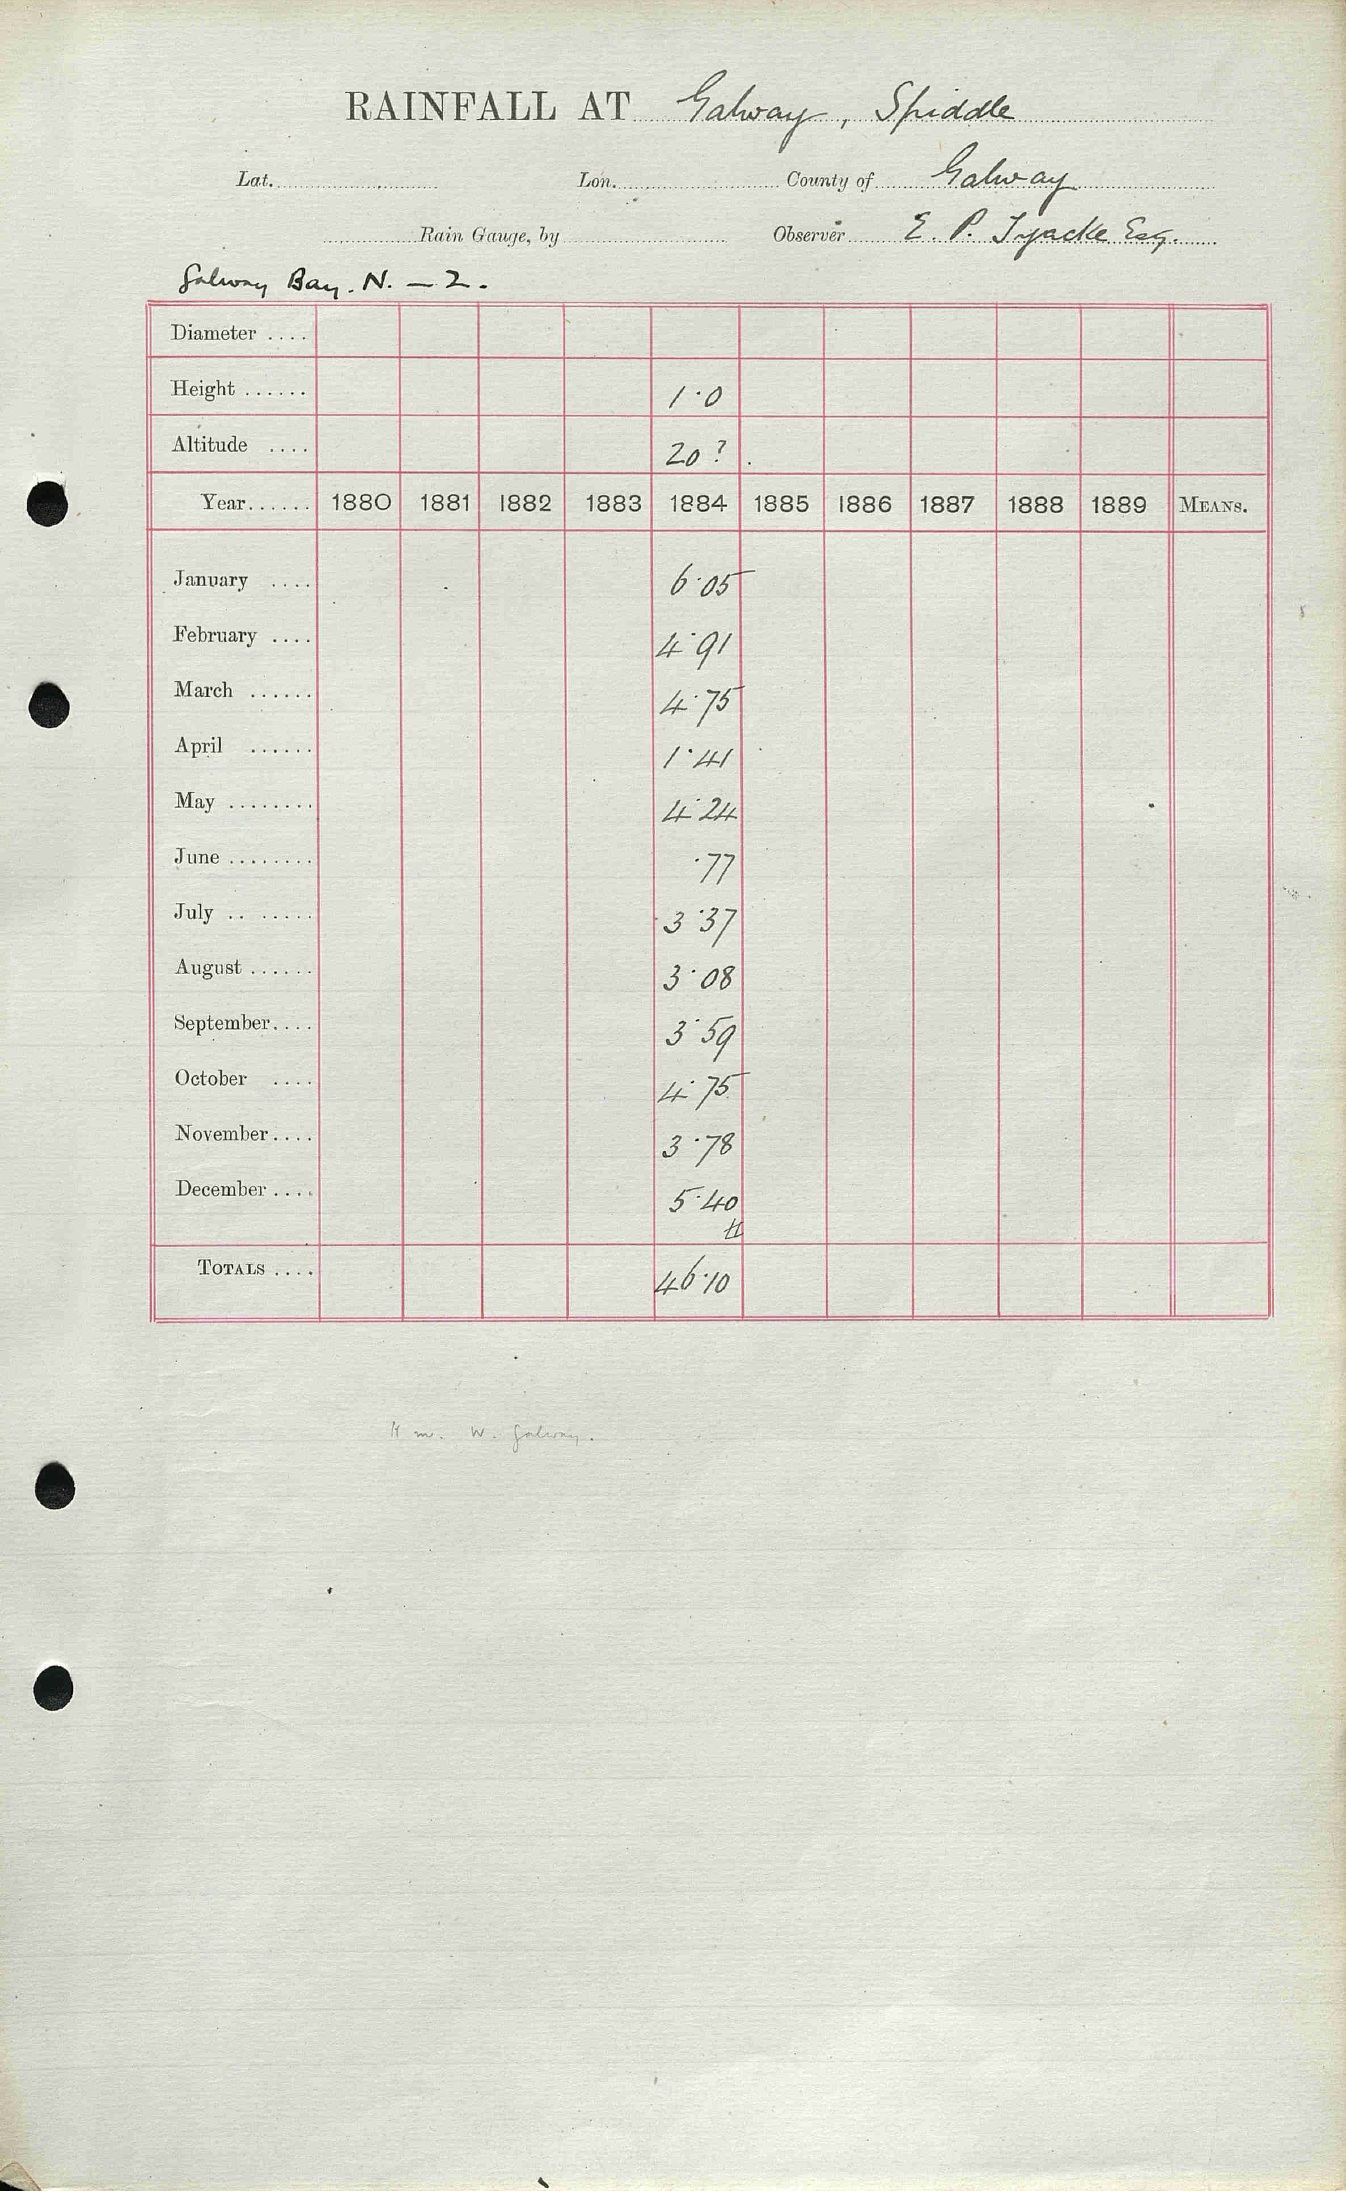 RAINFALL AT Galway, Spiddle
Lat. Lon. County of Galway
Rain Gauge, by Observer E. P. Tyacke Esq.
Galway Bay. N. — 2.
Diameter ....
Height ...... 1·0
Altitude .... 20?
Year...... 1880 1881 1882 1883 1884 1885 1886 1887 1888 1889 MEANS.
January .... 6·05
February .... 4·91
March ...... 4·75
April ...... 1·41
May ........ 4·24
June ........ ·77
July .. ..... 3·37
August ...... 3·08
September.... 3·59
October .... 4·75
November.... 3·78
December .... 5·40
TOTALS .... 46·10
m. W. Galway.